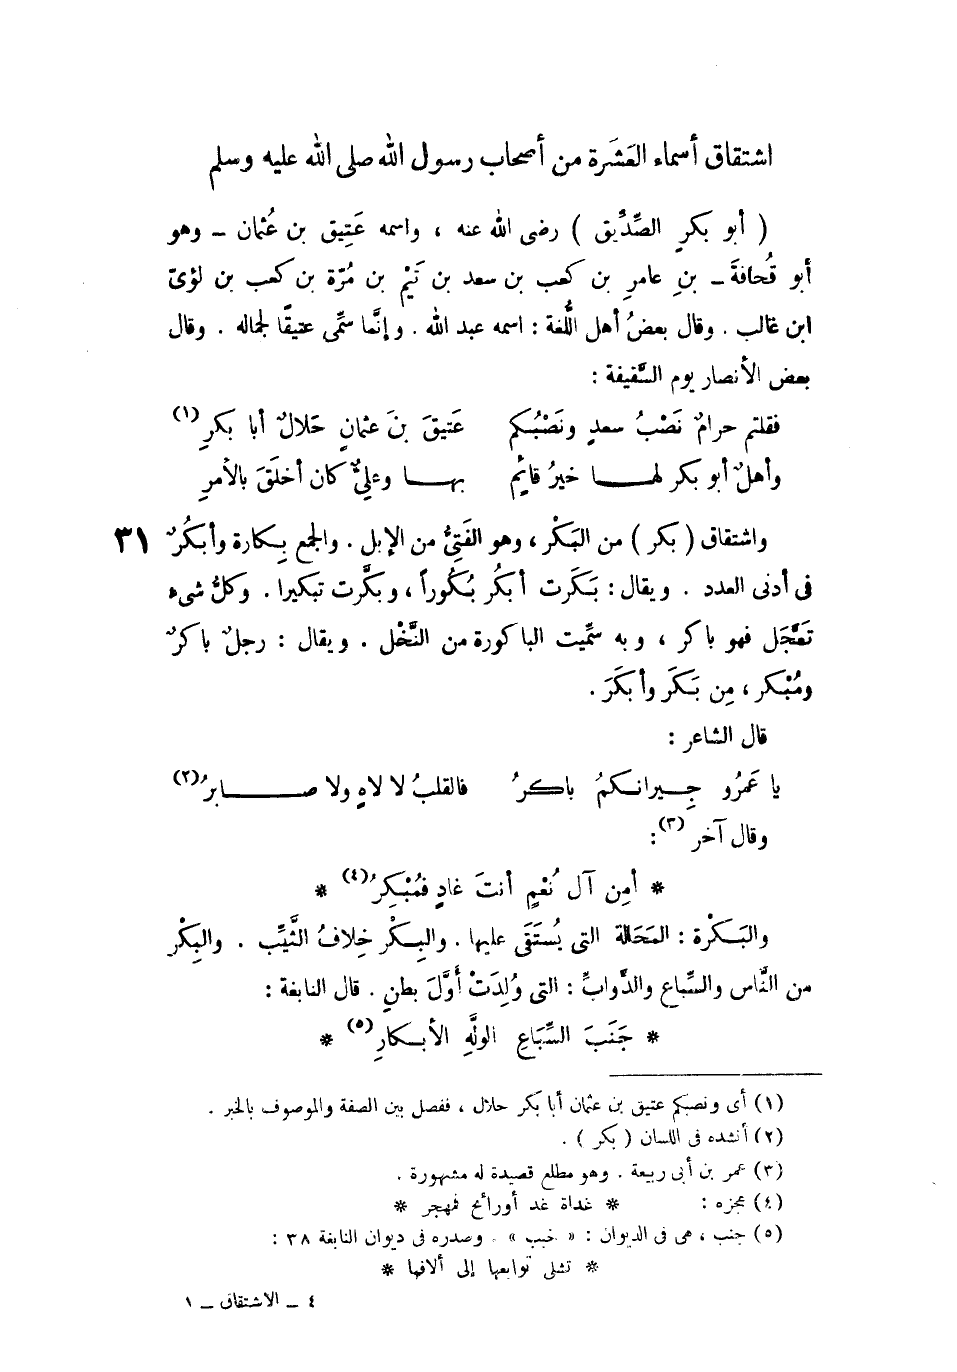 اشتقاق أسماء العَشَرة من أصحاب رسول الله صلى الله عليه وسلم
( أبو بكرٍ الصِّدِّيق ) رضى الله عنه ، واسمه عَتِيق بن عُثمان – وهو
أبو قُحافةَ – بنِ عامرِ بن كعب بن سعد بن تَيْم بن مُرّة بن كعب بن لؤىّ
ابن غالب . وقال بعضُ أهل اللُّغة : اسمه عبد الله . وإنَّما سمِّى عتيقًا لجماله . وقال
بعض الأنصار يوم السَّقيفة :
فقلتم حرامٌ نَصْبُ سعدٍ ونَصْبُكم عَتيقَ بنَ عثمانٍ حَلالٌ أبا بكرِ (١)
وأهلٌ أبو بكر لهـــا خيرُ قائِم بهـــا وعلىٌّ كان أخلَقَ بالأمرِ
واشتقاق ( بكر ) من البَكْر ، وهو الفَتِىُّ من الإبل . والجمع بِكارة وأبكُرٌ ٣١
فى أدنى العدد . ويقال : بَكَرت أبكُر بُكُوراً ، وبكَّرت تبكيرا . وكلُّ شىء
تَعَجَّل فهو باكر ، وبه سمِّيت الباكورة من النَّخْل . ويقال : رجلٌ باكرٌ
ومُبْكر ، مِن بَكَرَ وأبكَرَ .
قال الشاعر :
يا عَمرُو جِـيرانـكمُ باكرُ فالقلبُ لا لاهٍ ولا صـــابرُ (٢)
وقال آخر (٣) :
* أمِن آل نُعْمٍ أنتَ غادٍ فمُبْكِرُ (٤) *
والبَـكَرْة : المَحَالة التى يُستَقَى عليها . والبِـكْر خِلافُ الثَّيِّب . والبِكْر
من النَّاس والسِّباع والدَّوابِّ : التى وُلِدَتْ أوَّلَ بطنٍ . قال النابغة :
* جَنَبَ السِّبَاعِ الولَّهِ الأبـكارِ (٥) *
(١) أى ونصبكم عتيق بن عثمان أبا بكر حلال ، ففصل بين الصفة والموصوف بالخبر .
(٢) أنشده فى اللسان ( بكر ) .
(٣) عمر بن أبى ربيعة . وهو مطلع قصيدة له مشهورة .
(٤) عجزه : * غداة غد أورائح فمهجر *
(٥) جنب ، هى فى الديوان : « خبب » . وصدره فى ديوان النابغة ٣٨ :
* تشلى توابعها إلى ألافها *
٤ – الاشتقاق – ١